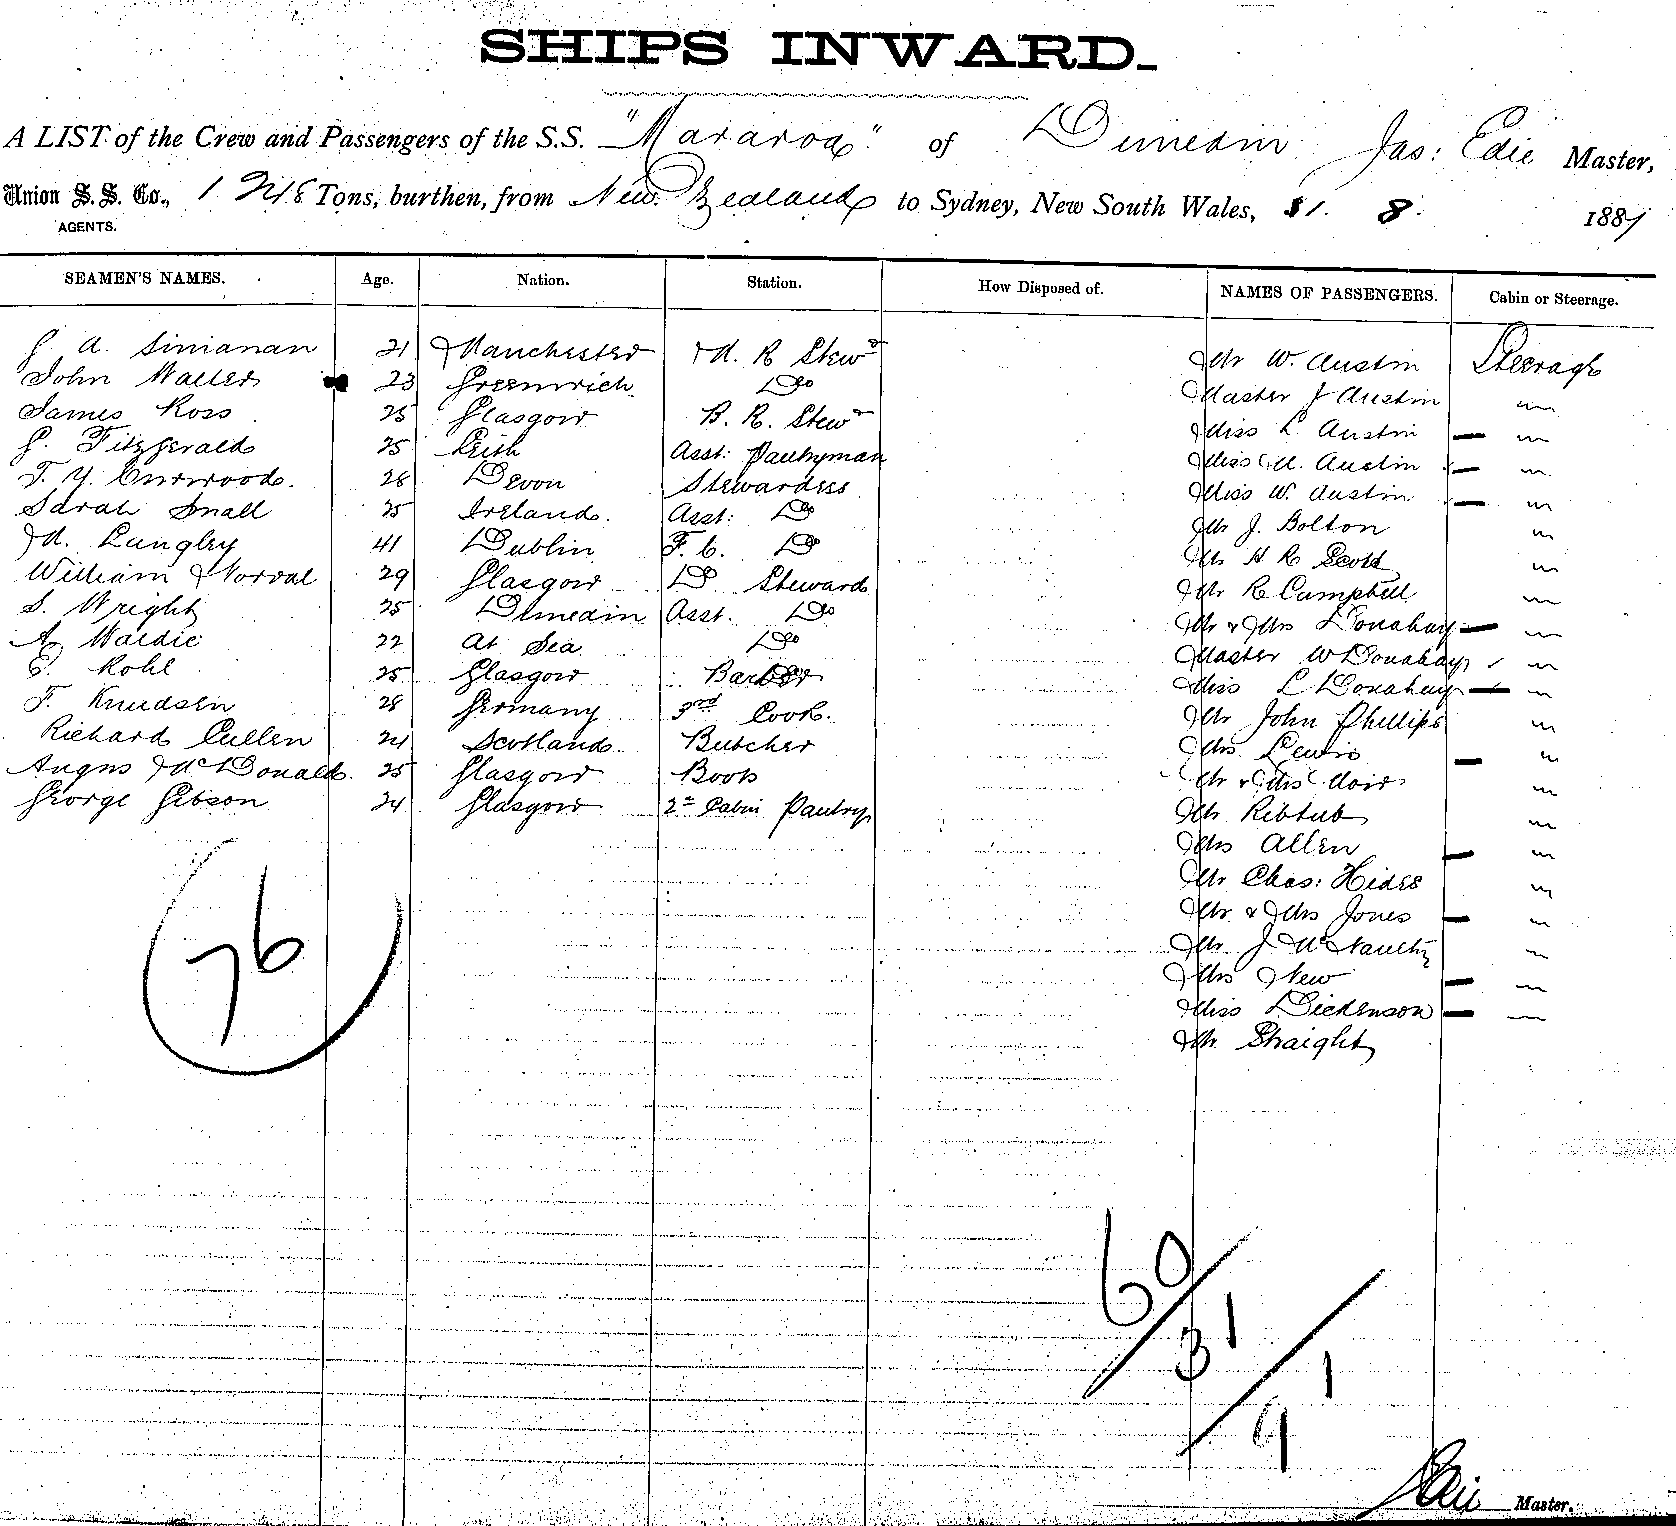 SHIPS INWARD.
A LIST of the Crew and Passengers of the S.S. "Mararoa" of Dunedin Jas: Edie Master,
Union S.S. Co., Tons, burthen, from New Zealand to Sydney, New South Wales, 31. 8. 1887
AGENTS.
SEAMEN'S NAMES. Age. Nation. Station. How Disposed of. NAMES OF PASSENGERS. Cabin or Steerage.
A. 21 Manchester M. R Stewd Mr W. Austin Steerage
John Walter 23 Greenwich Do Master J Austin "
James Ross 25 Glasgow B. R. Stewd Miss L Austin "
Fitzgerald 25 Leith Asst: Pantryman Miss M. Austin "
T. Y. 26 Devon Stewardess Miss W. Austin "
Sarah Snall 25 Ireland. Asst: Do Mr J. Bolton "
M. Langley 41 Dublin F. C. Do Mr H R Scott "
William Norval 29 Glasgow Do Steward Mr R Campbell "
S. Wright 25 Dunedin Asst. Do Mr & Mrs Donahay "
A Wardie 22 At Sea Do Master W Donahay "
Rohl 25 Glasgow Barber Miss L Donahay "
F. Knudsen 28 Germany 3rd Cook. Mr John Phillips "
Richard Cullen 24 Scotland Butcher Mrs Lewis "
Angus McDonald. 25 Glasgow Boots Mr & Mrs Moir "
George Gibson 24 Glasgow 2nd Cabin Pantry Mr Ribtub "
Mrs Allen "
Mr Chas: Hides "
Mr & Mrs Jones "
Mr J McNaulty "
Mrs New "
Miss Dickenson "
Mr Straight
76
60/31/91
Edie Master.